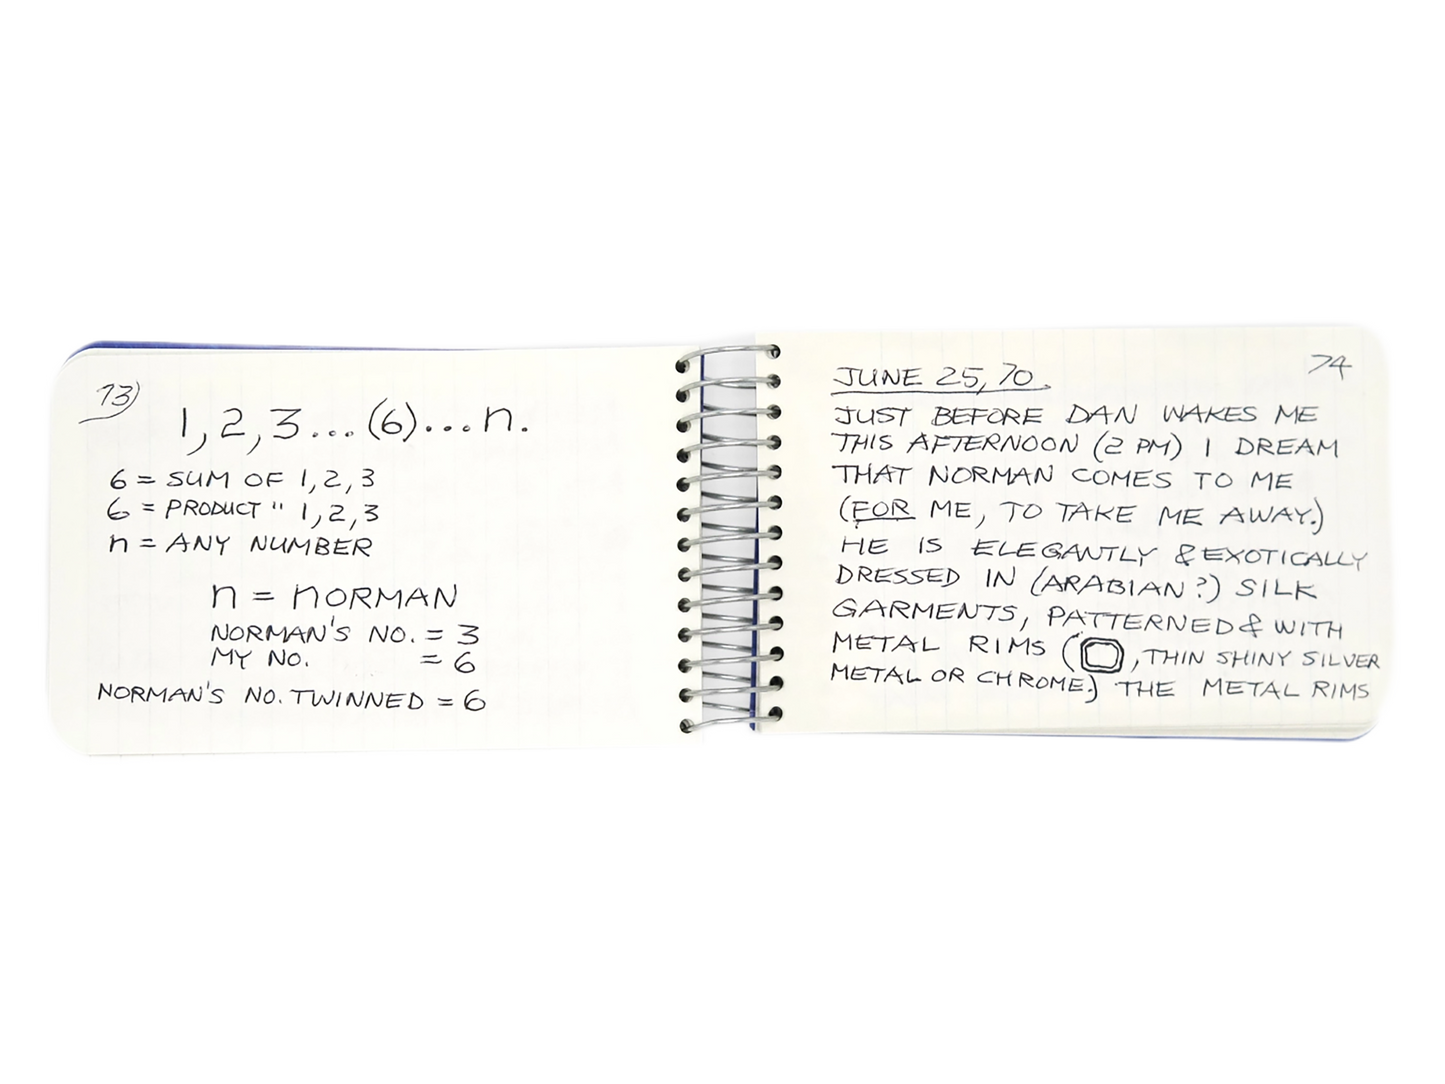 73)
1, 2, 3... (6)... n.
6 = SUM OF 1, 2, 3
6 = PRODUCT " 1, 2, 3
n = ANY NUMBER
n = nORMAN
NORMAN'S NO. = 3
MY NO. = 6
NORMAN'S NO. TWINNED = 6
74
JUNE 25, 70.
JUST BEFORE DAN WAKES ME
THIS AFTERNOON (2 PM) I DREAM
THAT NORMAN COMES TO ME
(FOR ME, TO TAKE ME AWAY.)
HE IS ELEGANTLY & EXOTICALLY
DRESSED IN (ARABIAN?) SILK
GARMENTS, PATTERNED & WITH
METAL RIMS ( , THIN SHINY SILVER
METAL OR CHROME.) THE METAL RIMS